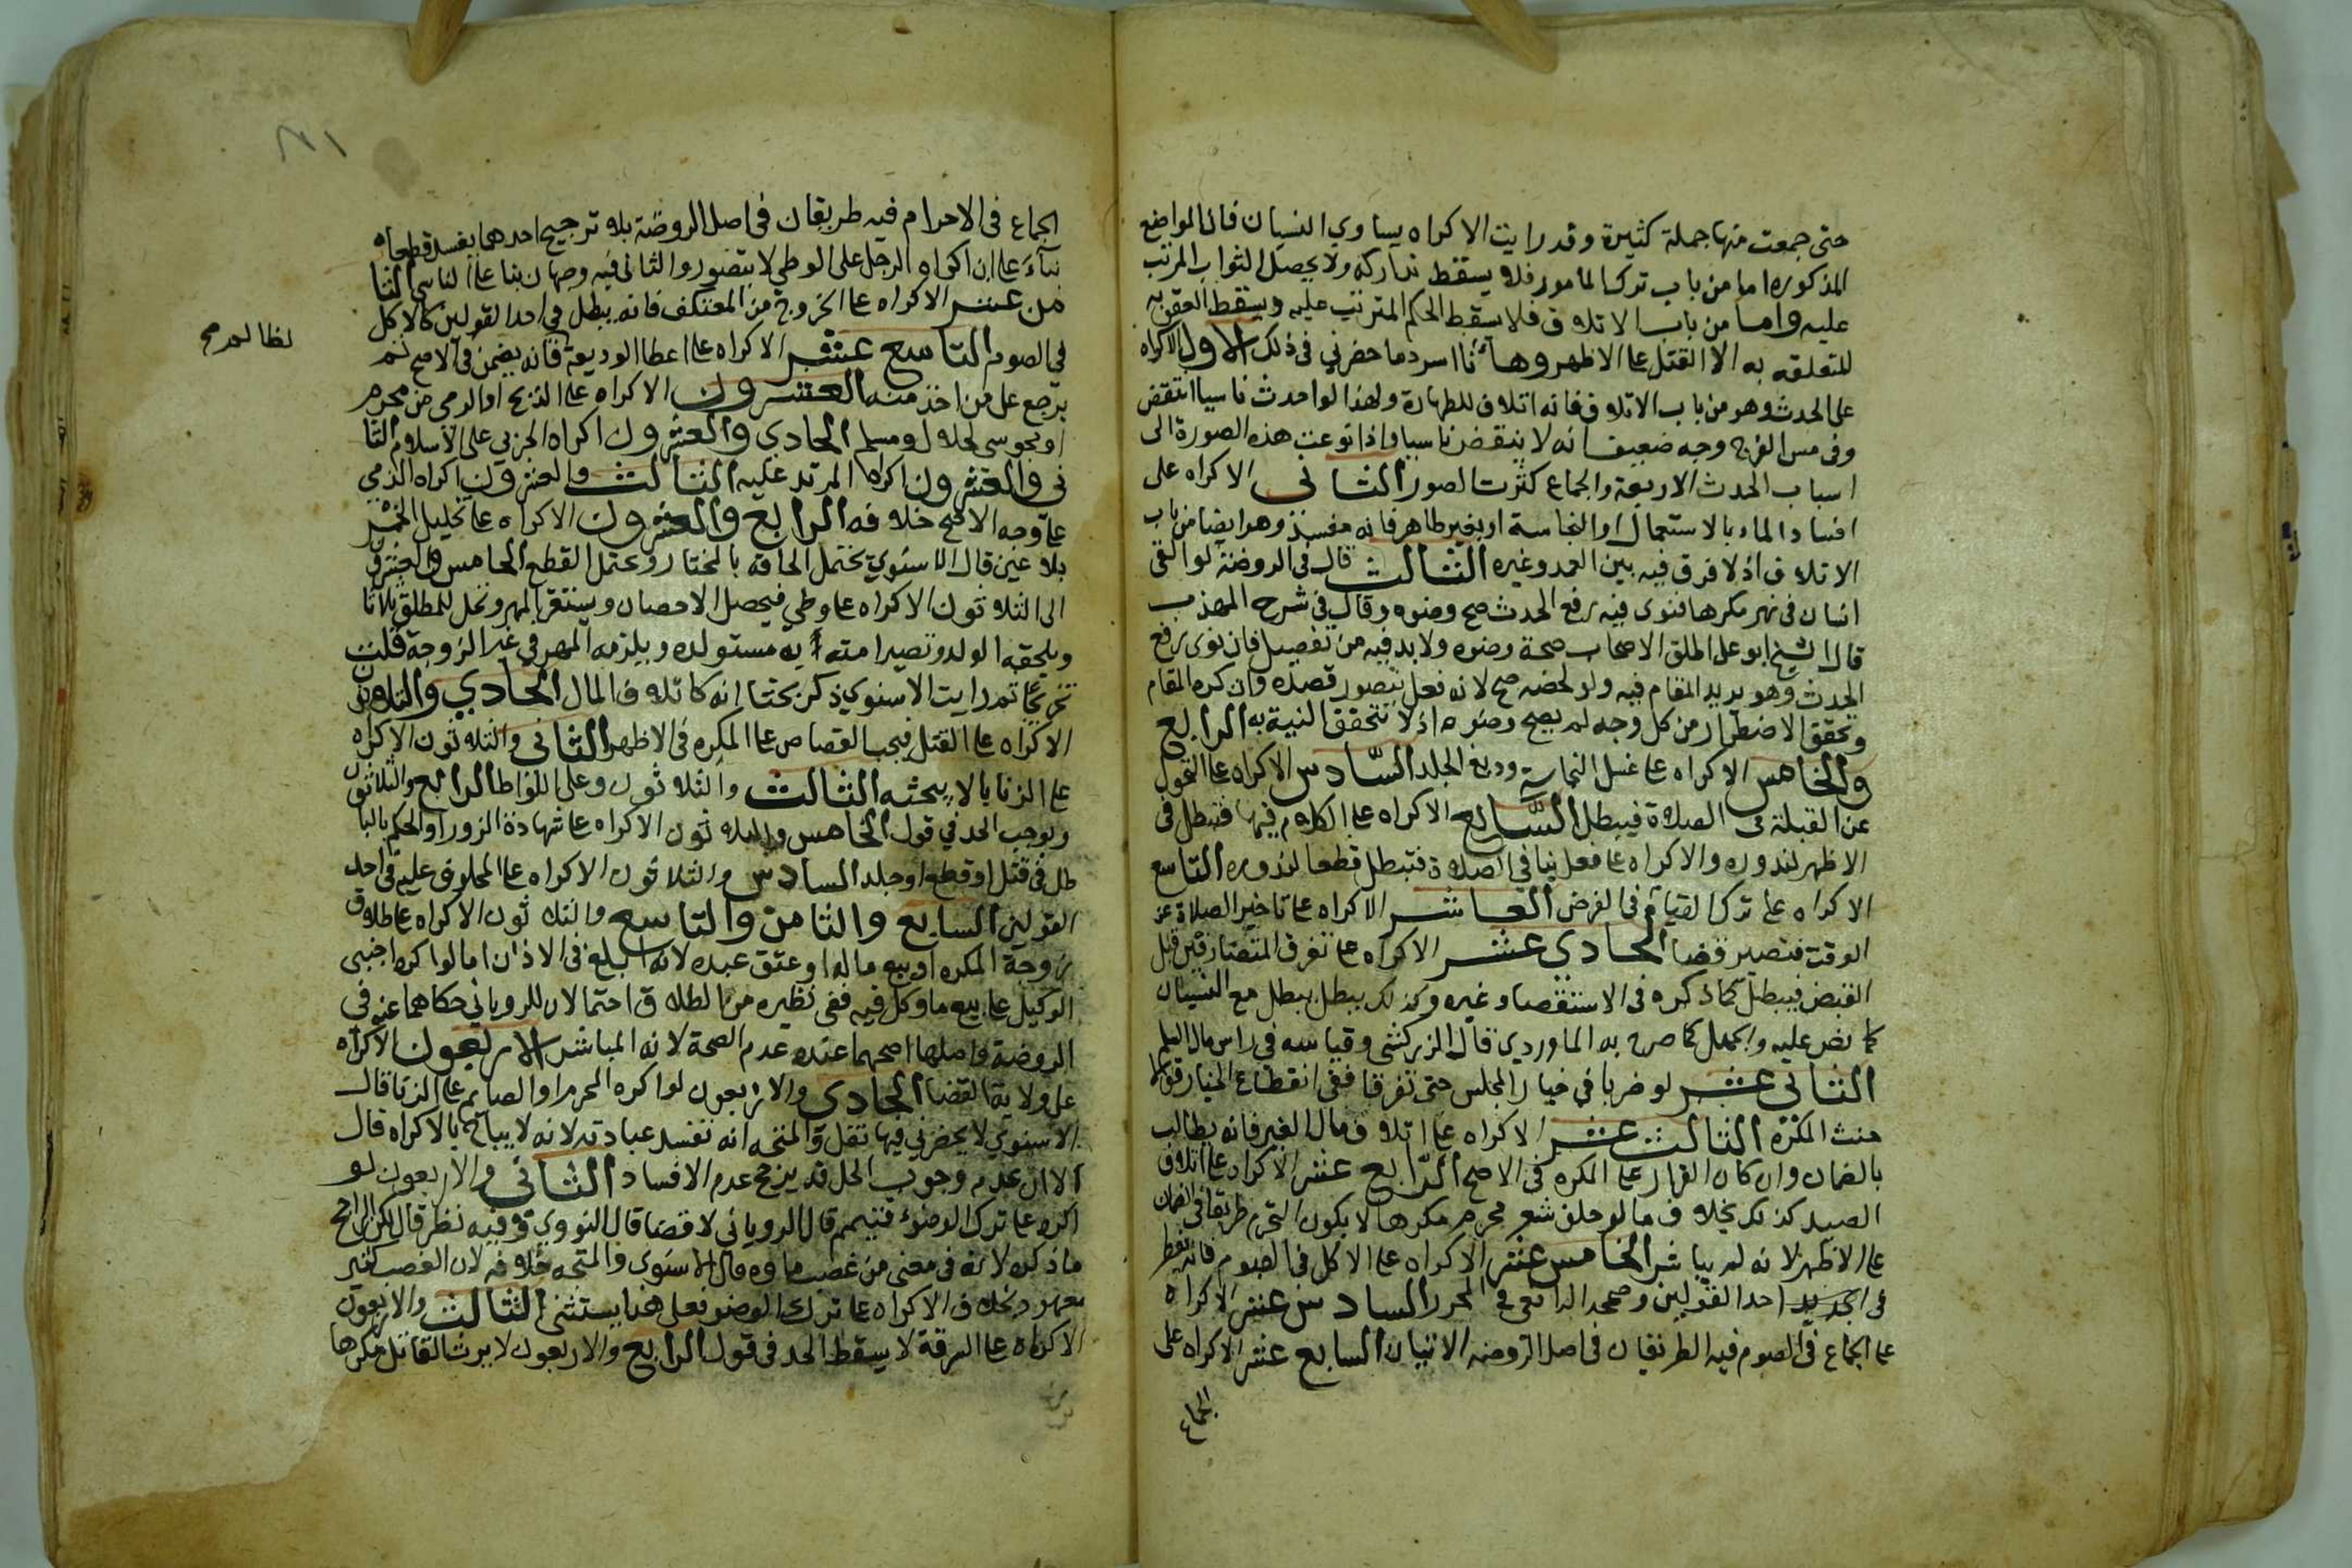 حتى جمعت منها جملة كثيرة وقد رايت الاكراه يساوي النسيان فان المواضع
المذكورة اما من باب ترك المامور فلا يسقط تداركه ولا يحصل الثواب المرتب
عليه واما من باب الاتلاف فلا يسقط الحكم المترتب عليه ويسقط العقوبه
المتعلقه به الا القتل على الاظهر وها انا اسرد ما حضرني في ذلك الاول الاكراه
على الحدث وهو من باب الاتلاف فانه اتلاف للطهارة ولهذا لو احدث ناسيا انتقض
وفى مس الفرج وجه ضعيف انه لا ينقض ناسيا واذا نوعت هذه الصورة الى
اسباب الحدث الاربعة والجماع كثرت الصور الثانى الاكراه على
افساد الماء بالاستعمال او النجاسة او بغير طاهر فانه مفسد وهو ايضا من باب
الاتلاف اذ لا فرق فيه بين العمد وغيره الثالث قال فى الروضة لو القى
انسان فى نهر مكرها فنوى فيه رفع الحدث صح وضوه وقال فى شرح المهذب
قال الشيخ ابو على اطلق الاصحاب صحة وضوه ولا بد فيه من تفصيل فان نوى رفع
الحدث وهو يريد المقام فيه ولو لحضه صح لانه فعل يتصور قصده وان كره المقام
وتحقق الاضطرار من كل وجه لم يصح وضوه اذ لا تتحقق النية به الرابع
والخامس الاكراه على غسل النجاسة ودبغ الجلد السادس الاكراه على التحول
عن القبلة فى الصلاة فيبطل السابع الاكراه على الكلام فيها فتبطل فى
الاظهر لندوره والاكراه على فعل ينافي الصلاة فتبطل قطعا لندوره التاسع
الاكراه على ترك القيام فى الفرض العاشر الاكراه على تاخير الصلاة عن
الوقت فتصير قضا الحادي عشر الاكراه على تفرق المتصارفين قبل
القبض فيبطل كما ذكره فى الاستقصا وغيره وكذلك يبطل مع النسيان
كما نص عليه والجهل كما صرح به الماوردي قال الزركشى وقياسه فى راس مال السلم
الثانى عشر لو ضربا في خيار المجلس حتى تفرقا ففى انقطاع الخيار قولا
حنث المكره الثالث عشر الاكراه على اتلاف مال الغير فانه يطالب
بالضمان وان كان القرار على المكره فى الاصح الرابع عشر الاكراه على اتلاف
الصيد كذلك بخلاف ما لو حلق شعر محرم مكرها لا يكون المحرم طريقا فى الضمان
على الاظهر لانه لم يباشر الخامس عشر الاكراه على الاكل فى الصوم فانه يفطر
فى احد القولين وصححه الرافعى فى المحرر السادس عشر الاكراه
على الجماع فى الصوم فيه الطريقان فى اصل الروضه الاتيان السابع عشر الاكراه على
الجماع
الجماع فى الاحرام فيه طريقان فى اصل الروضة بلا ترجيح احدهما يفسد قطعا
بناء على ان اكراه الرجل على الوطي لا يتصور والثانى فيه وجهان بنا على الناسي الثا
من عشر الاكراه على الخروج من المعتكف فانه يبطل فى احد القولين كالاكل
في الصوم التاسع عشر الاكراه على اعطا الوديعة فانه يضمن فى الاصح ثم
يرجع على من اخذ منه العشرون الاكراه على الذبح او الرمي من محرم
او مجوسى لحلال ومسلم الحادي والعشرون اكراه الحربي على الاسلام الثا
نى والعشرون اكراه المرتد عليه الثالث والعشرون اكراه الذمي
على وجه الاصح خلافه الرابع والعشرون الاكراه على تخليل الخمر
بلا عين قال الاسنوي يحتمل الحاقه بالمختار ويحتمل القطع الخامس والعشرون
الى الثلاثون الاكراه على وطي فيحصل الاحصان ويستقر المهر وتحل للمطلق ثلاثا
ويلحقه الولد وتصير امته به مستولده ويلزمه المهر في غير الزوجة قلت
تخريجا ثم رايت الاسنوي ذكر بحثا انه كاتلاف المال الحادي والثلاثون
الاكراه على القتل فيجب القصاص على المكره فى الاظهر الثانى والثلاثون الاكراه
على الزنا لا يبيحه الثالث والثلاثون وعلى اللواط الرابع والثلاثون
ويوجب الحد في قول الخامس والثلاثون الاكراه على شهادة الزور او الحكم بالبا
طل فى قتل او قطع او جلد السادس والثلاثون الاكراه على المحلوف عليه فى احد
القولين السابع والثامن والتاسع والثلاثون الاكراه على طلاق
زوجة المكره او بيع ماله او عتق عبده لانه ابلغ فى الاذن اما لو اكره اجنبى
الوكيل على بيع ما وكل فيه ففى نظيره من الطلاق احتمالان للروياني حكاهما عنه فى
الروضة واصلها اصحهما عنده عدم الصحة لانه المباشر الاربعون الاكراه
على ولاية القضا الحادي والاربعون لو اكره المحرم او الصايم على الزنا قال
الاسنوي لا يحضرني فيها نقل والمتجه انه تفسد عبادته لانه لا يباح بالاكراه قال
الا ان عدم وجوب الحل قد يرجح عدم الافساد الثانى والاربعون لو
اكره على ترك الوضوء فتيمم قال الروياني لا قضا قال النووي وفيه نظر قال لكن الراجح
ما ذكره لانه فى معنى من غصب ماوه وقال الاسنوى والمتجه خلافه لان الغصب كثير
معهود بخلاف الاكراه على ترك الوضو فعلى هذا يستثنى الثالث والاربعون
الاكراه على السرقة لا يسقط الحد فى قول الرابع والاربعون لا يرث القاتل مكرها